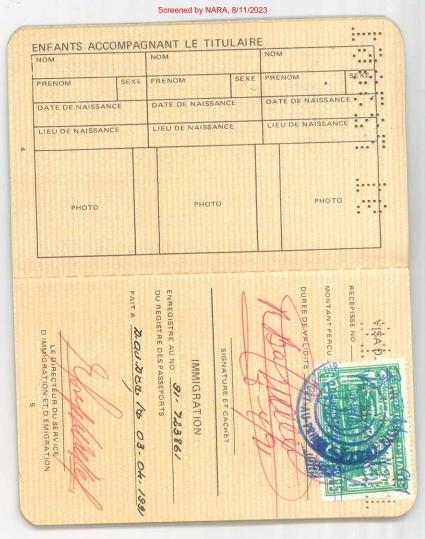 Screened by NARA, 8/11/2023
ENFANTS ACCOMPAGNANT LE TITULAIRE
NOM NOM NOM
PRENOM SEXE PRENOM SEXE PRENOM SEXE
DATE DE NAISSANCE DATE DE NAISSANCE DATE DE NAISSANCE
LIEU DE NAISSANCE LIEU DE NAISSANCE LIEU DE NAISSANCE
PHOTO PHOTO PHOTO
4
VISA D
RECEPISSE NO
MONTANT PERCU
DUREE DE VALIDITE
SIGNATURE ET CACHET
IMMIGRATION
ENREGISTRE AU NO 91-723861
DU REGISTRE DES PASSEPORTS
FAIT A 03-04-1991
LE DIRECTEUR DU SERVICE
D'IMMIGRATION ET D'EMIGRATION
5